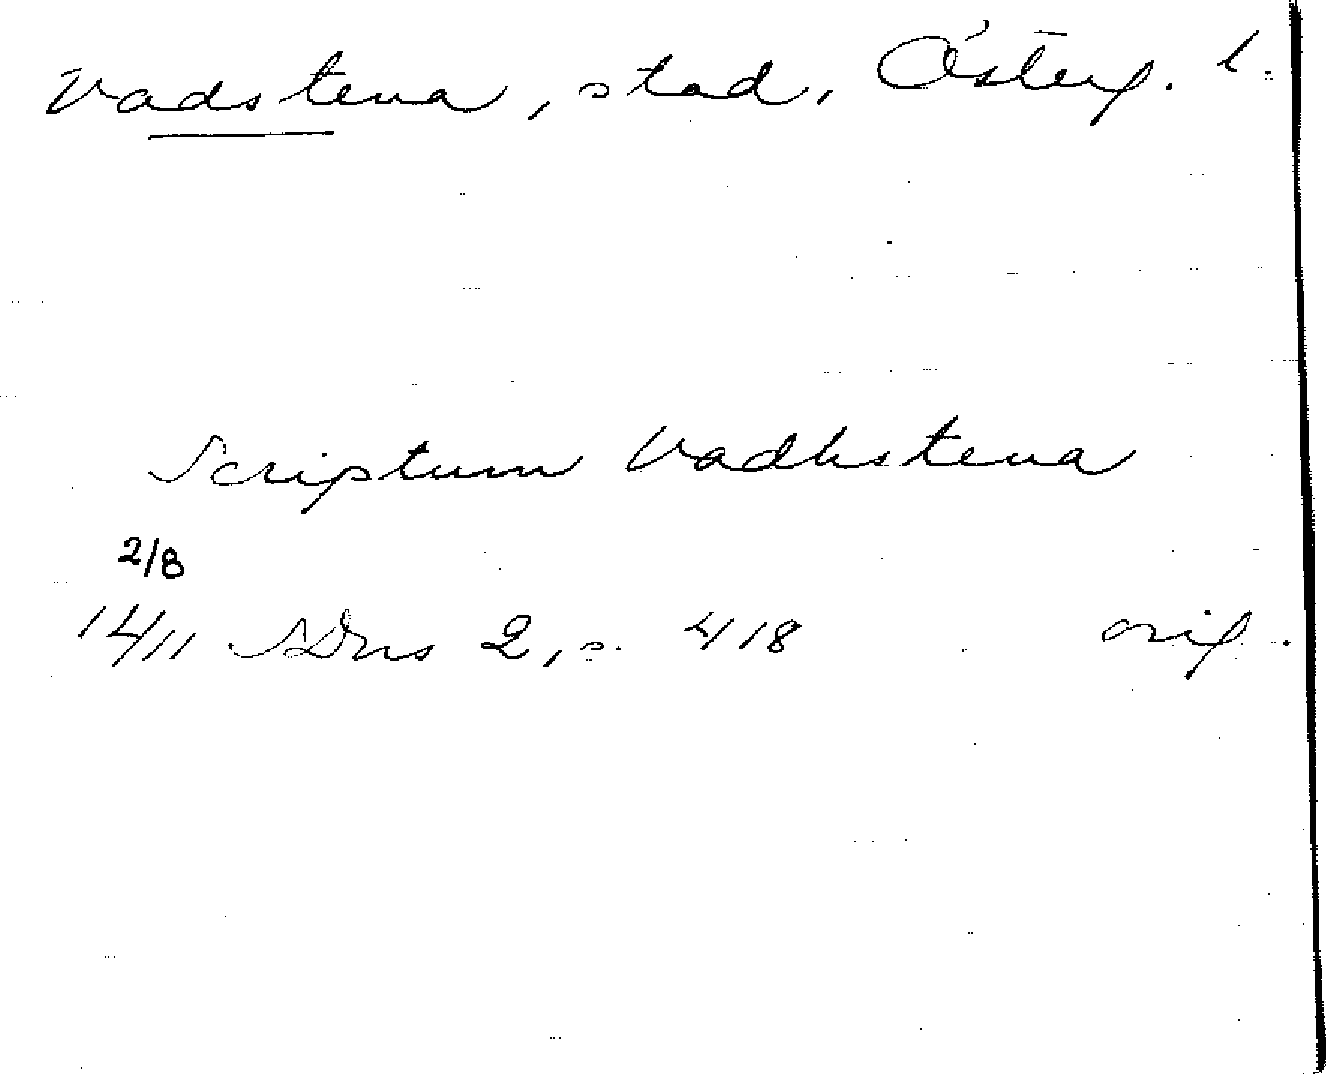 Vadstena, stad, Österg. l.
Scriptum Vadhstena
2/8
14/11 SDns 2, s. 418 orig.